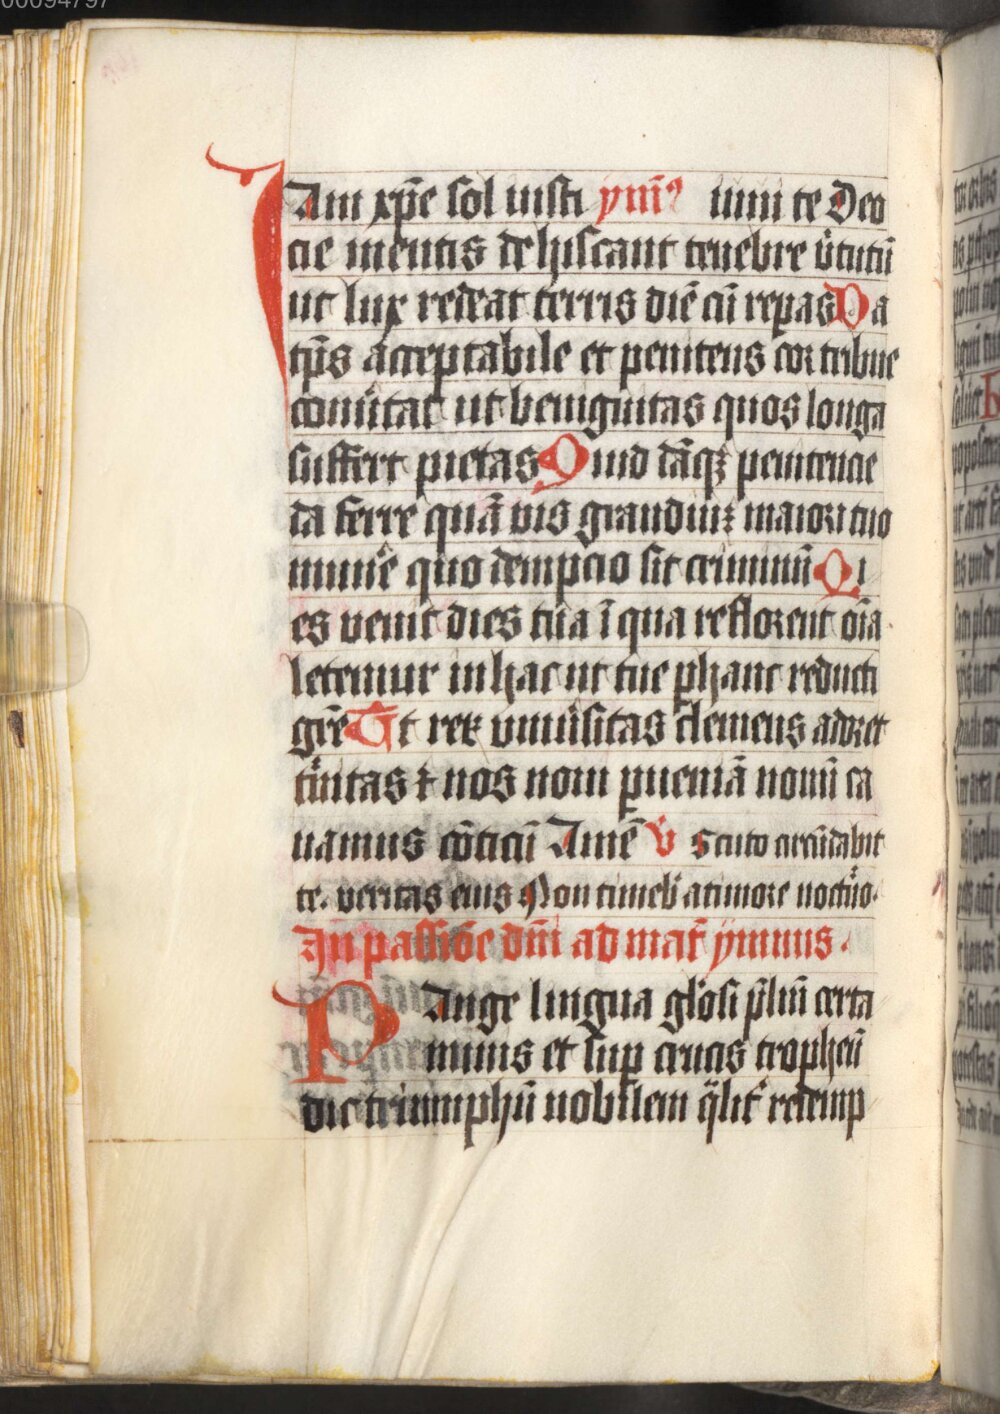 00094797
Iam xp̄e sol iusti ym̄ꝰ iam te Deo
cie mentis dehiscant tenebre v̄tutū
ut lux redeat terris diē cū repas Da
tp̄s acceptabile et penitens cor tribue
conūtat ut benignitas quos longa
suffert pietas Quid dāqꝫ penitencie
da ferre quā vis grandiuꝫ maiori tuo
mune quo dempcio sit criminū Di
es venit dies tua ī qua reflorent oīa
letemur in hac ut tue ꝑ hanc reducti
grē Te rex vniūsitas clemens adoret
t̄nitas ⁊ nos noui ꝓueniā nouū ca
namus cāticū Amē v̄ Scuto circūdabit
te. veritas eius Non timeb̄ a timore noct̄no.
In passiōe dn̄i ad mat̄ ymnus.
Pange lingua gl̄osi p̄liū certa
minis et suꝑ crucis tropheū
dic triumphū nobilem q̄lit̄ redemp